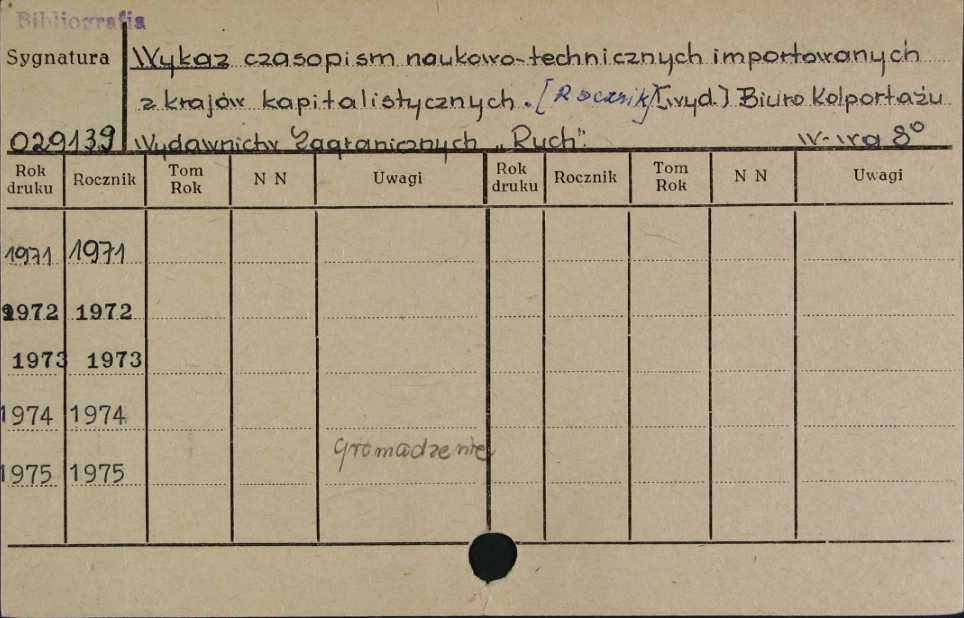 Bibliografia
Sygnatura Wykaz czasopism naukowo-technicznych importowanych
z krajów kapitalistycznych. [Rocznik] [wyd.] Biuro Kolportażu
029139 Wydawnictw Zagranicznych „Ruch". W-wa 8°
Rok druku Rocznik Tom Rok N N Uwagi Rok druku Rocznik Tom Rok N N Uwagi
1971 1971
1972 1972
1973 1973
1974 1974
gromadzenie
1975 1975